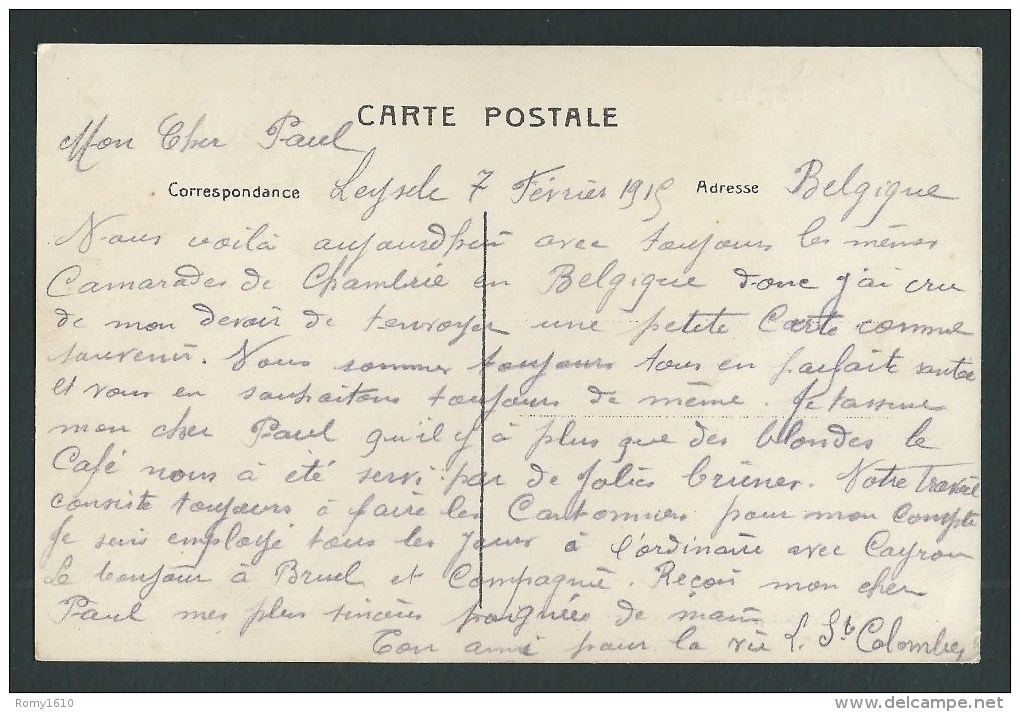 CARTE POSTALE
Mon Cher Paul
Correspondance Leysele 7 Février 1915 Adresse Belgique
Nous voilà aujourdhui avec toujours les mêmes
Camarades de Chambrie en Belgique donc j'ai cru
de mon devoir de tenvoyer une petite Carte comme
souvenir. Nous sommes toujours tous en parfaite santée
et vous en souhaitons toujours de même. Je tassure
mon cher Paul qu'il y à plus que des blondes le
Café nous à été servi par de jolies brunes. Notre Travail
consiste toujours à faire les Cantonniers pour mon Compte
Je suis employé tous les jours à l'ordinaire avec Cayrou
Le bonjour à Bruel et Compagnie. Reçois mon cher
Paul mes plus sincères poignées de main
Ton ami pour la vie L. St Colombes
Romy1610
delcampe.net